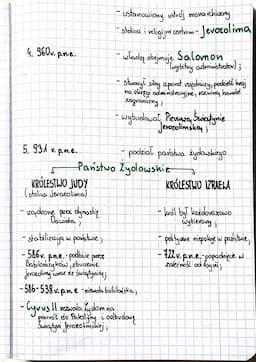 - ustanowiony ustrój monarchiczny
- stolica i religijne centrum - Jerozolima
4. 960r. p.n.e.
- władzę obejmuje Salomon
(wybitny administrator);
- stworzył silny aparat urzędniczy, podzielił kraj
na okręgi administracyjne, rozwinął handel
zagraniczny;
- wybudował Pierwszą Świątynię
Jerozolimską;
5. 931 r. p.n.e.
- podział państwa żydowskiego
Państwo Żydowskie
KRÓLESTWO JUDY
(stolica Jerozolima)
- rządzone przez dynastię
Dawida;
- stabilizacja w państwie;
- 586r. p.n.e. - podbicie przez
Babilończyków, zburzenie
Jerozolimy wraz ze świątynią;
- 586-538r. p.n.e. - niewola babilońska;
- Cyrus II zezwala Żydom na
powrót do Palestyny i odbudowę
Świątyni Jerozolimskiej;
KRÓLESTWO IZRAELA
- król był każdorazowo
wybierany;
- polityczne niepokoje w państwie;
- 722r. p.n.e. - popadnięcie w
zależność od Asyrii;